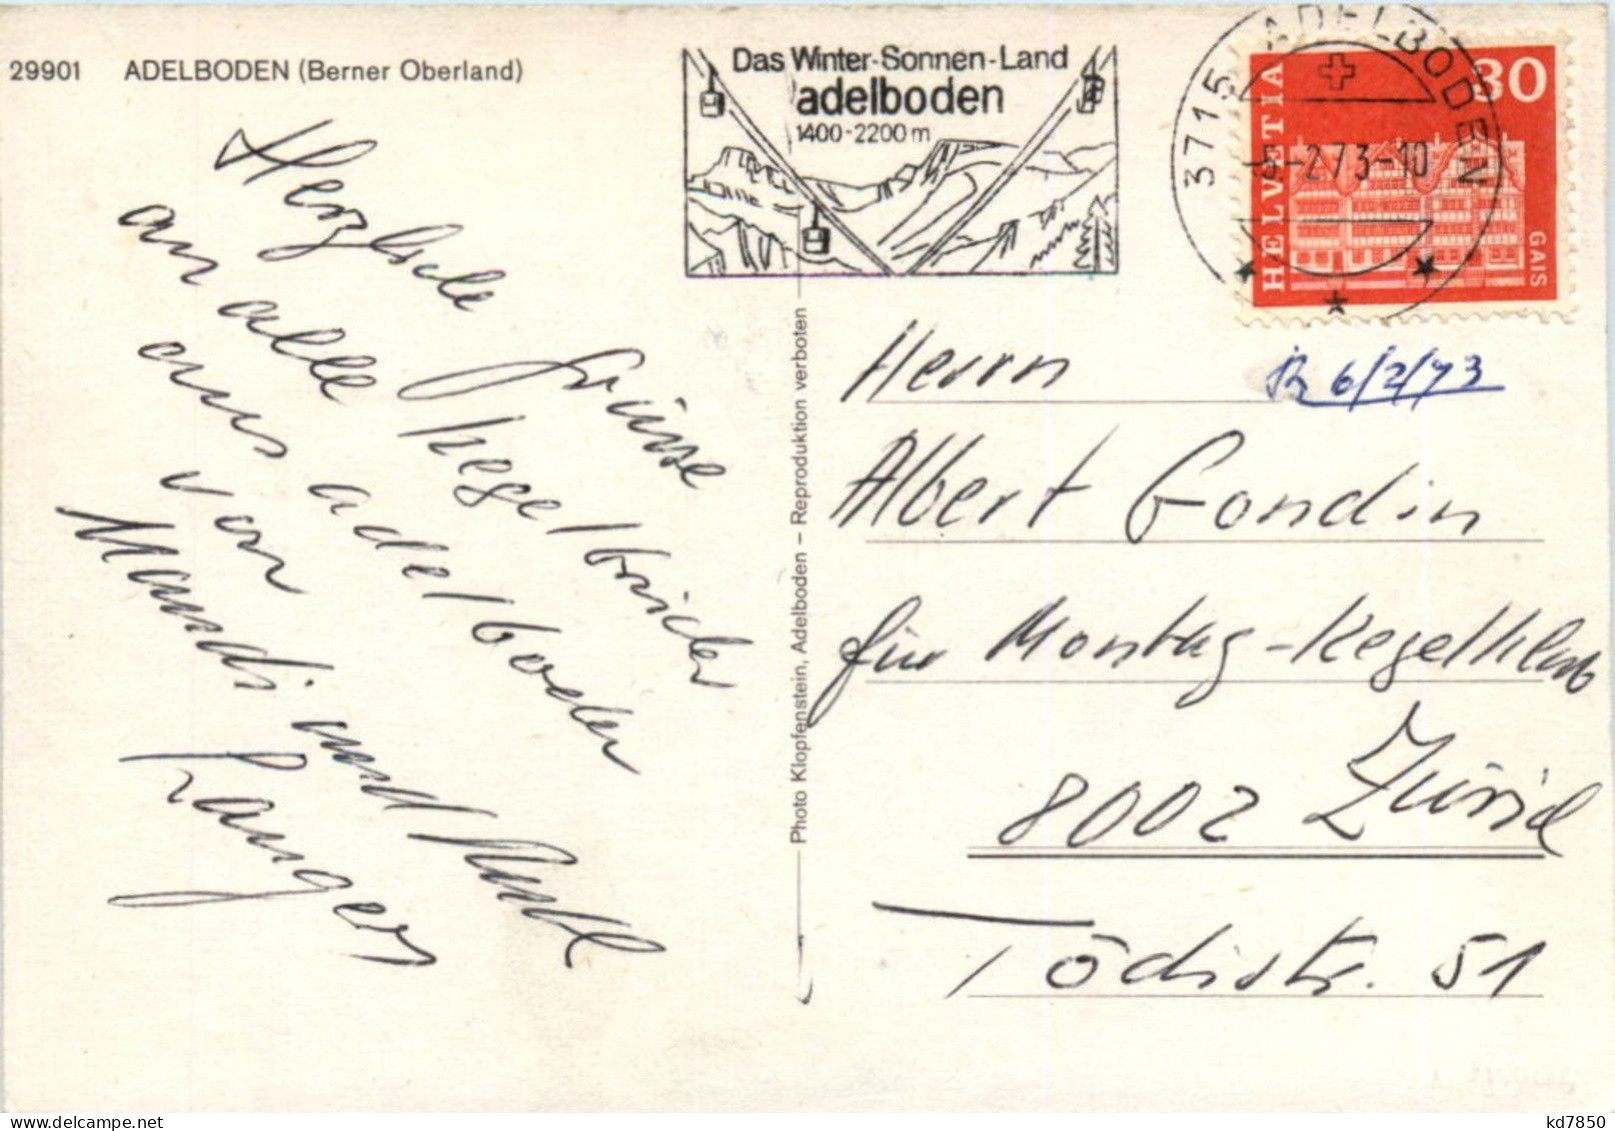 29901 ADELBODEN (Berner Oberland)
Das Winter-Sonnen-Land
adelboden
1400-2200 m
3715 ADELBODEN
5-2.73-10
HELVETIA
30
GAIS
Herzliche Grüsse
an alle Kegelbrüder
aus adelboden
von
Mandi und
Langer
Photo Klopfenstein, Adelboden – Reproduktion verboten
R 6/2/73
Herrn
Albert Gondin
für Montag-Kegelklub
8002 Zürich
Tödistr. 51
kd7850